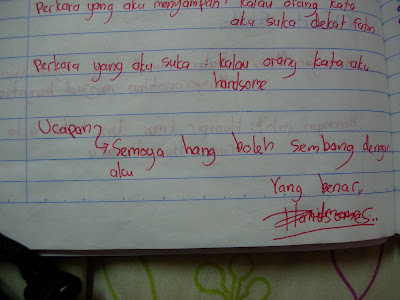 Perkara yang aku menyampah : kalau orang kata
aku suka dekat fatin
Perkara yang aku suka : kalau orang kata aku
handsome
Ucapan
↳ Semoga hang boleh sembang dengan
aku
Yang benar,